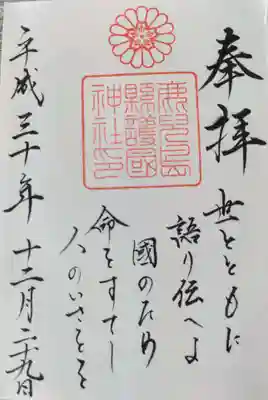 奉拝
世とともに
語り伝へよ
國のため
命をすてし
人のいさをを
鹿児島
縣護國
神社印
平成三十年十二月二十九日